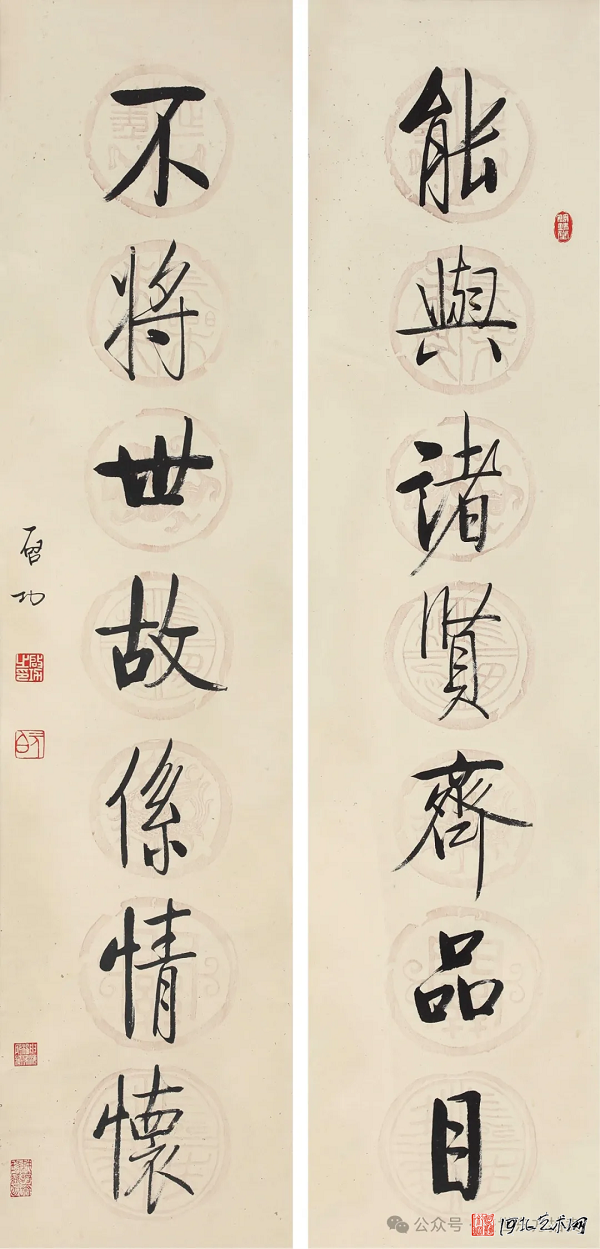 能與諸賢齊品目
不將世故係情懷
啓功
公众号
河北艺术网